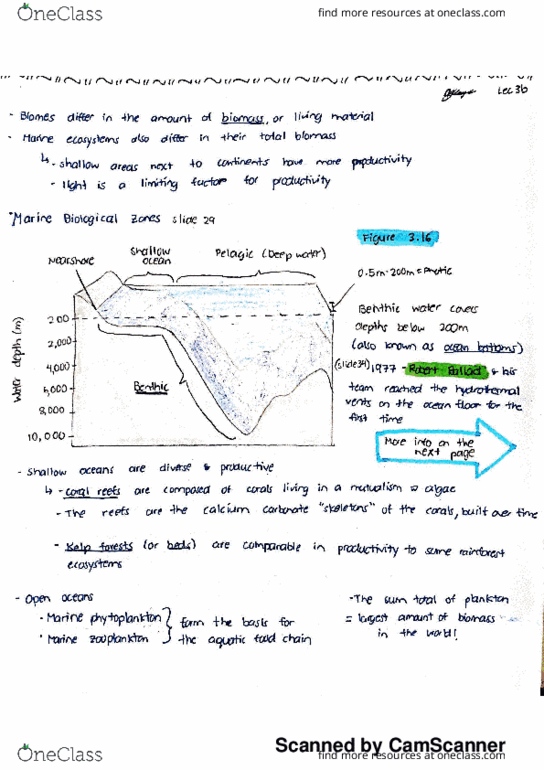 OneClass
find more resources at oneclass.com
Lec 3b
- Biomes differ in the amount of biomass, or living material
- Marine ecosystems also differ in their total biomass
↳ - shallow areas next to continents have more productivity
- light is a limiting factor for productivity
*Marine Biological Zones slide 29
Figure 3.16
Nearshore
Shallow ocean
Pelagic (Deep water)
0.5m-200m = Photic
Water depth (m)
200
2,000
4,000
6,000
8,000
10,000
Benthic
Benthic water covers
depths below 200m
(also known as ocean bottoms)
(slide 34) 1977 - Robert Ballard & his
team reached the hydrothermal
vents on the ocean floor for the
first time
More info on the
next page
- Shallow oceans are diverse & productive
↳ - coral reefs are composed of corals living in a mutualism algae
- The reefs are the calcium carbonate "skeletons" of the corals, built over time
- Kelp forests (or beds) are comparable in productivity to some rainforest
ecosystems
- Open oceans
- Marine phytoplankton } form the basis for
- Marine zooplankton } the aquatic food chain
- The sum total of plankton
= largest amount of biomass
in the world!
Scanned by CamScanner
OneClass
find more resources at oneclass.com